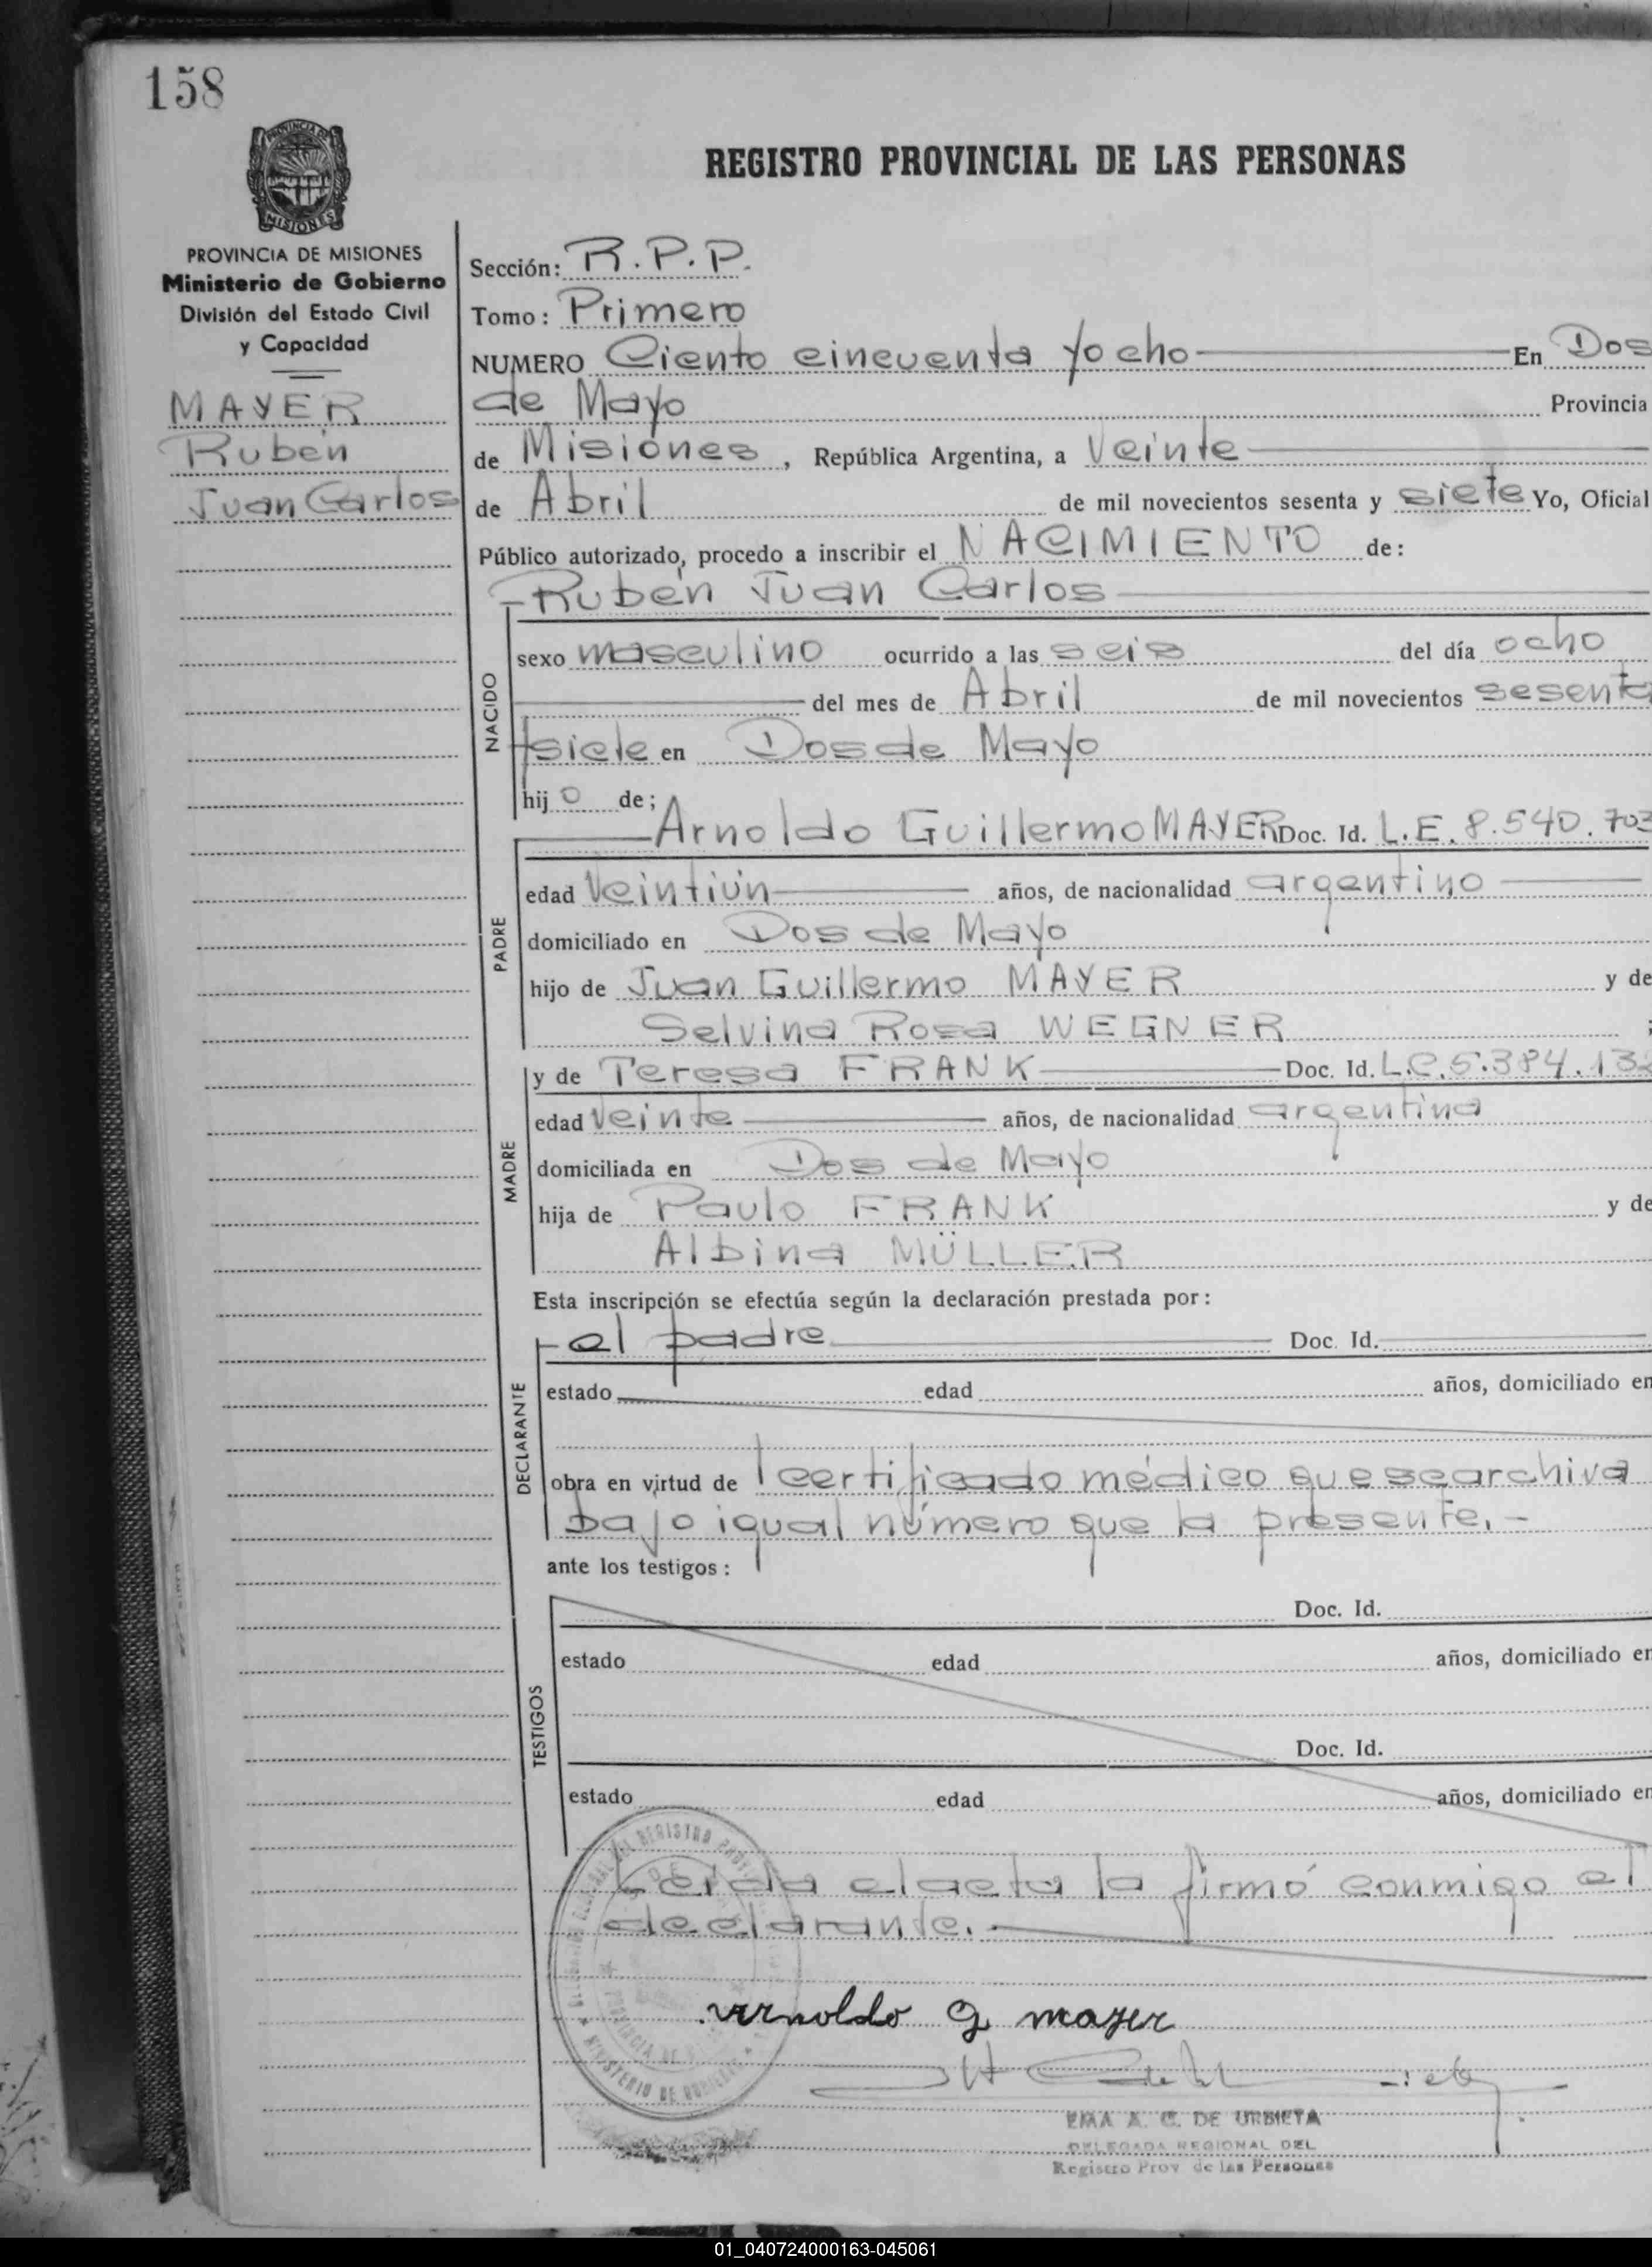 158
REGISTRO PROVINCIAL DE LAS PERSONAS
PROVINCIA DE MISIONES
MISIONES
PROVINCIA DE MISIONES
Ministerio de Gobierno
División del Estado Civil
y Capacidad
MAYER
Rubén
Juan Carlos
Sección: R.P.P.
Tomo: Primero
NUMERO Ciento cincuenta y ocho En Dos
de Mayo Provincia
de Misiones, República Argentina, a Veinte
de Abril de mil novecientos sesenta y siete Yo, Oficial
Público autorizado, procedo a inscribir el NACIMIENTO de:
Rubén Juan Carlos
NACIDO
sexo masculino ocurrido a las seis del día ocho
del mes de Abril de mil novecientos sesenta
y siete en Dos de Mayo
hijo de;
Arnoldo Guillermo MAYER Doc. Id. L.E. 8.540.703
PADRE
edad Veintiún años, de nacionalidad argentino
domiciliado en Dos de Mayo
hijo de Juan Guillermo MAYER y de
Selvina Rosa WEGNER ;
MADRE
y de Teresa FRANK Doc. Id. L.C. 5.384.132
edad Veinte años, de nacionalidad argentina
domiciliada en Dos de Mayo
hija de Paulo FRANK y de
Albina MÜLLER
Esta inscripción se efectúa según la declaración prestada por:
DECLARANTE
el padre Doc. Id.
estado edad años, domiciliado en
obra en virtud de 1 certificado médico que se archiva
bajo igual número que la presente.-
ante los testigos:
TESTIGOS
Doc. Id.
estado edad años, domiciliado en
Doc. Id.
estado edad años, domiciliado en
Leída el acta la firmó conmigo el
declarante.-
Arnoldo G mayer
EMA A. C. DE URBIETA
DELEGADA REGIONAL DEL
Registro Prov. de las Personas
01_040724000163-045061